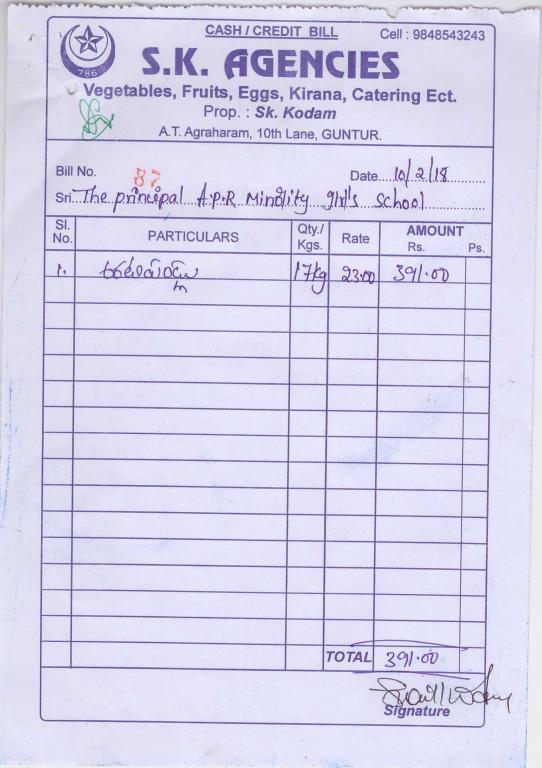 CASH / CREDIT BILL
Cell : 9848543243
786
S.K. AGENCIES
Vegetables, Fruits, Eggs, Kirana, Catering Ect.
Prop. : Sk. Kodam
A.T. Agraharam, 10th Lane, GUNTUR.
Bill No. 87
Date 10/2/18
Sri. The principal A.P.R Minority girl's School
Sl. No. PARTICULARS Qty./ Kgs. Rate AMOUNT Rs. Ps.
1. 17kg 23.00 391.00
TOTAL 391.00
Signature